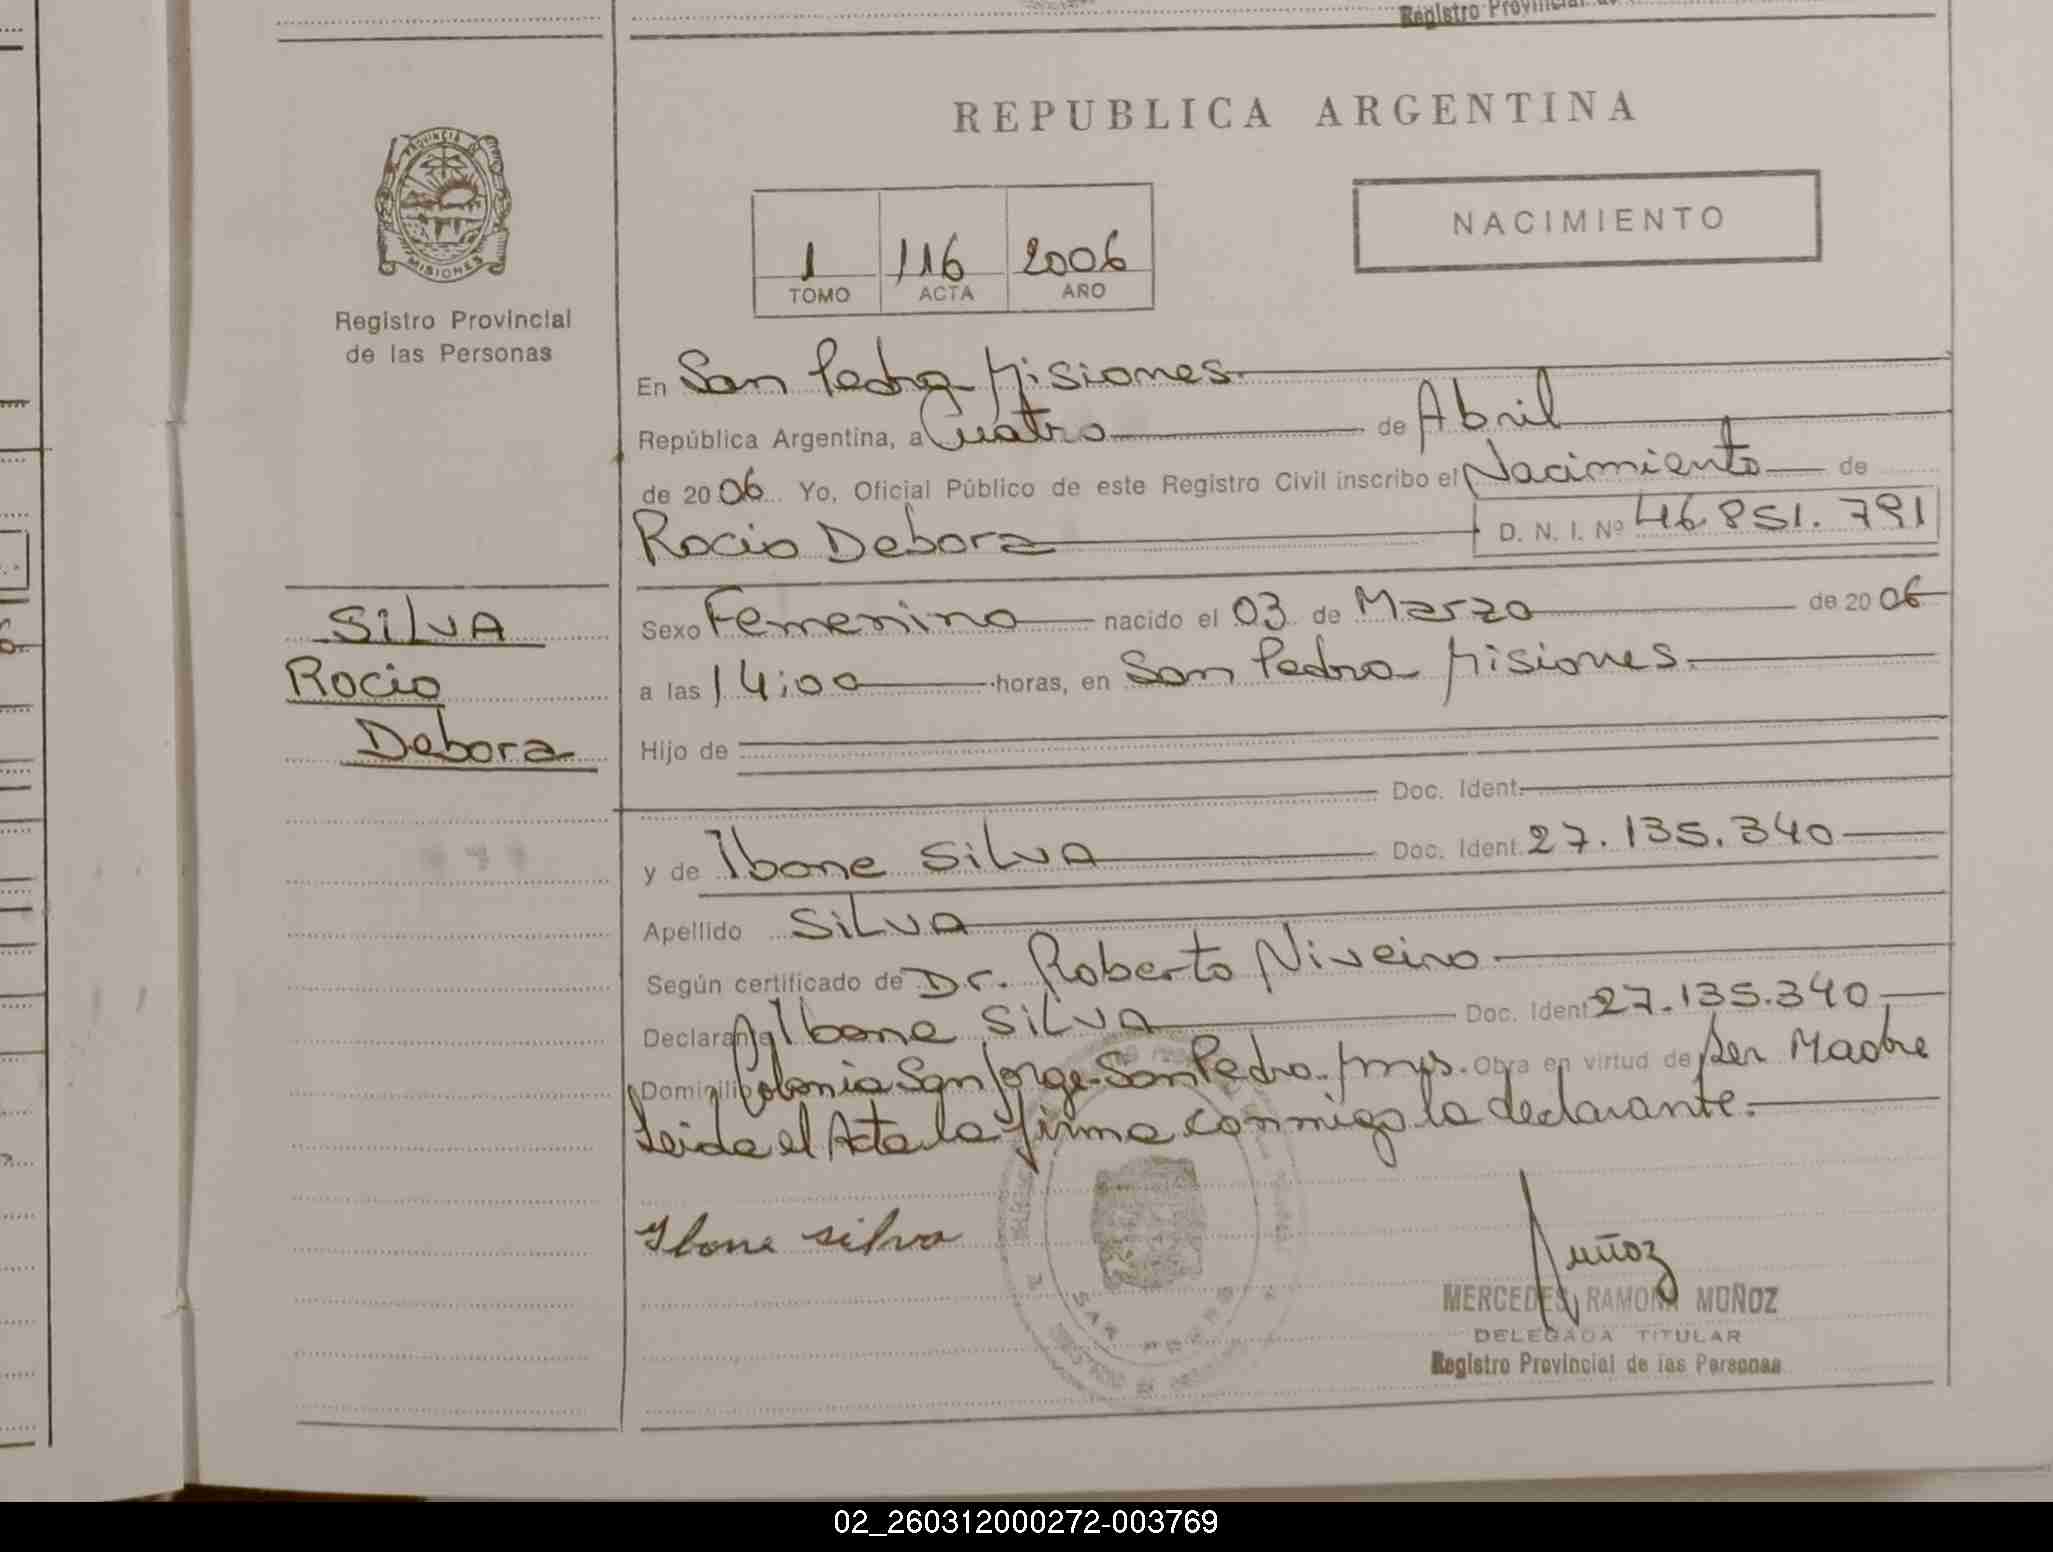 Registro Provincial
REPUBLICA ARGENTINA
PROVINCIA
MISIONES
Registro Provincial
de las Personas
1 116 2006
TOMO ACTA AÑO
NACIMIENTO
En San Pedro Misiones
República Argentina, a Cuatro de Abril
de 2006 Yo, Oficial Público de este Registro Civil inscribo el Nacimiento de
Rocio Debora D. N. I. Nº 46.851.791
SILVA
Rocio
Debora
Sexo Femenino nacido el 03 de Marzo de 2006
a las 14:00 horas, en San Pedro Misiones.
Hijo de
Doc. Ident.
y de Ibone SILVA Doc. Ident. 27.135.340
Apellido SILVA
Según certificado de Dr. Roberto Niveiro
Declarante Ibone SILVA Doc. Ident 27.135.340
Domicilio Colonia San Jorge-San Pedro. Mnes. Obra en virtud de Ser Madre
Leida el Acta la firma conmigo la declarante.
Ibone silva
Muñoz
MERCEDES RAMONA MUÑOZ
DELEGADA TITULAR
Registro Provincial de las Personas
SAN PEDRO
02_260312000272-003769